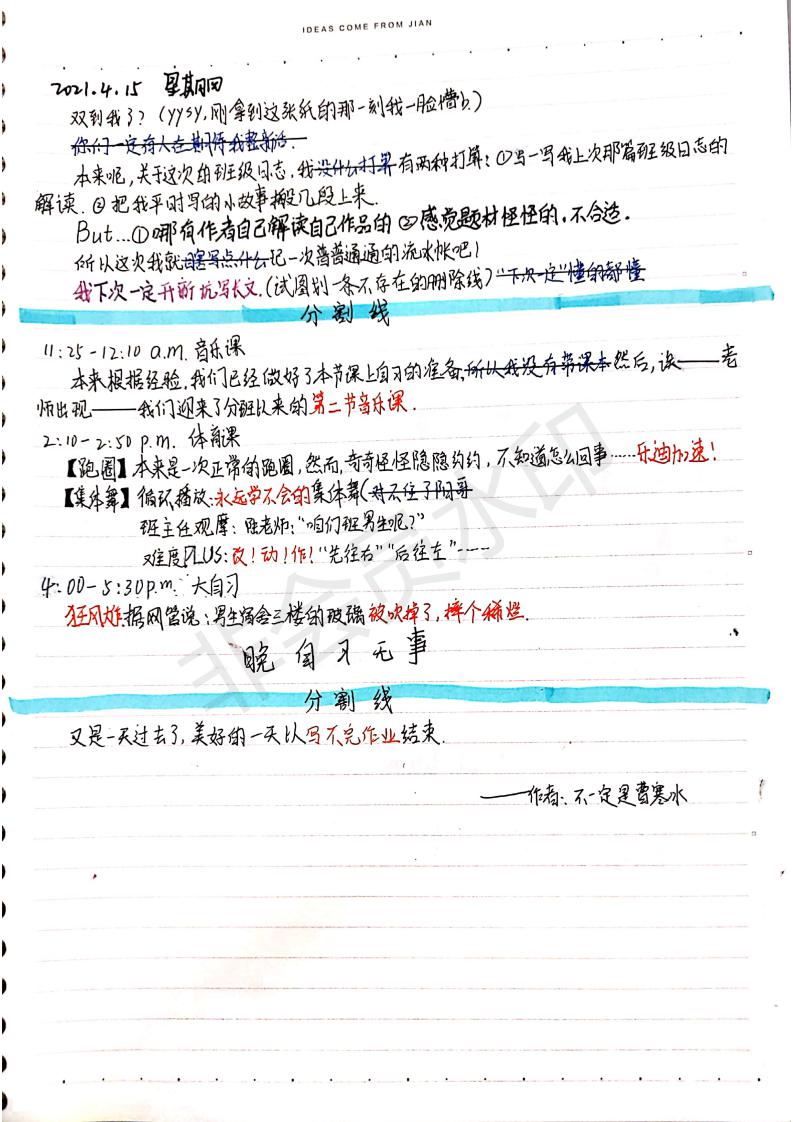 IDEAS COME FROM JIAN
2021.4.15 星期四
双到我了？（yysy，刚拿到这张纸的那一刻我一脸懵b。）
你们一定有人在期待我整新活.
本来呢，关于这次的班级日志，我没什么打算有两种打算：①写一写我上次那篇班级日志的
解读. ②把我平时写的小故事搬几段上来.
But…①哪有作者自己解读自己作品的 ②感觉题材怪怪的，不合适.
所以这次我就瞎写点什么记一次普普通通的流水帐吧！
我下次一定开新坑写长文.（试图划一条不存在的删除线）"下次一定"懂的都懂
分割线
11:25-12:10 a.m. 音乐课
本来根据经验，我们已经做好了本节课上自习的准备，所以我没有带课本然后，诶——老
师出现——我们迎来了分班以来的第二节音乐课.
2:10-2:50 p.m. 体育课
【跑圈】本来是一次正常的跑圈，然而，奇奇怪怪隐隐约约，不知道怎么回事……乐迪加速！
【集体舞】循环播放：永远学不会的集体舞（对不住了阿哥
班主任观摩：老师："咱们班男生呢？"
难度PLUS：改！动！作！"先往右""后往左"……
4:00-5:30p.m. 大自习
狂风炸，据网管说：男生宿舍三楼的玻璃被吹掉了，摔个稀烂.
晚自习无事
分割线
又是一天过去了，美好的一天以写不完作业结束.
——作者：不一定是曹寒冰
非会员水印